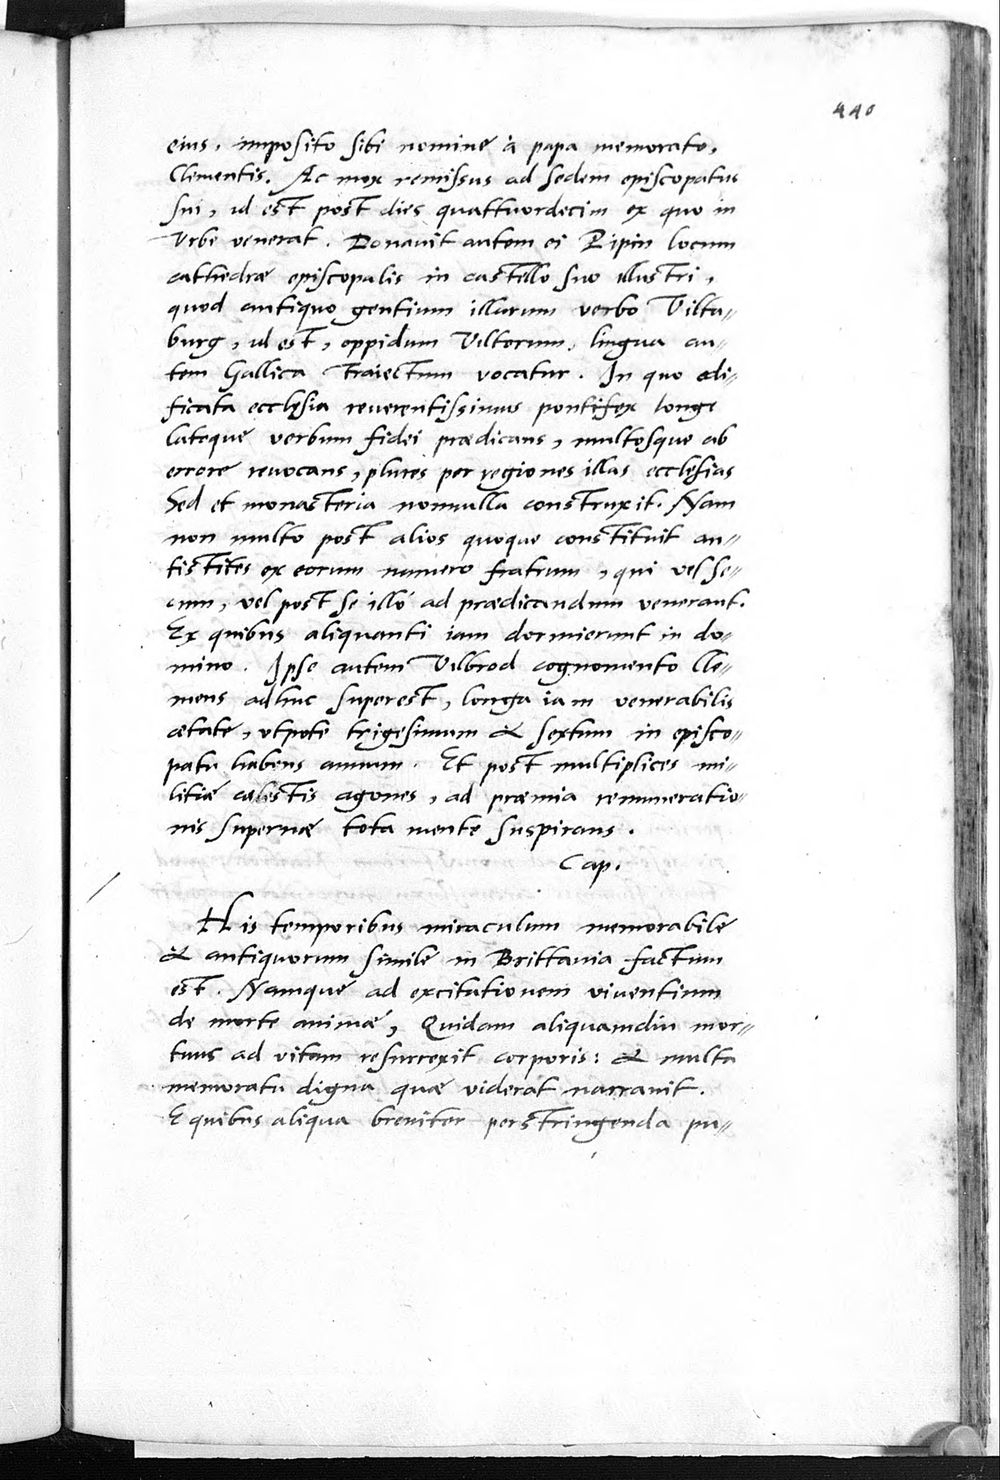 440
eius, imposito sibi nomine à papa memorato,
Clementis. Ac mox remissus ad sedem episcopatus
sui, id est post dies quattuordecim ex quo in
Vrbe venerat. Donauit autem ei Pipin locum
cathedræ episcopalis in castello suo illustri,
quod antiquo gentium illarum verbo Vilta„
burg, id est, oppidum Viltorum, lingua au„
tem Gallica Traiectum vocatur. In quo ædi„
ficata ecclęsia reuerentissimus pontifex longe
lateque verbum fidei prædicans, multosque ab
errore reuocans, plures per regiones illas ecclęsias
Sed et monasteria nonnulla construxit. Nam
non multo post alios quoque constituit an„
tistites ex eorum numero fratrum, qui vel se„
cum, vel post se illó ad prædicandum venerant.
Ex quibus aliquanti iam dormierunt in do„
mino. Ipse autem Vilbrod cognomento Cle„
mens adhuc superest, longa iam venerabilis
ætate, vtpote trigesimum & sextum in episco„
patu habens annum. Et post multiplices mi„
litiæ cælestis agones, ad præmia remuneratio„
nis supernæ tota mente suspirans.
Cap.
His temporibus miraculum memorabile
& antiquorum simile in Brittania factum
est. Namque ad excitationem viuentium
de morte animæ, Quidam aliquamdiu mor„
tuus ad vitam resurrexit corporis: & multa
memoratu digna quæ viderat narrauit.
E quibus aliqua breuiter perstringenda pu„